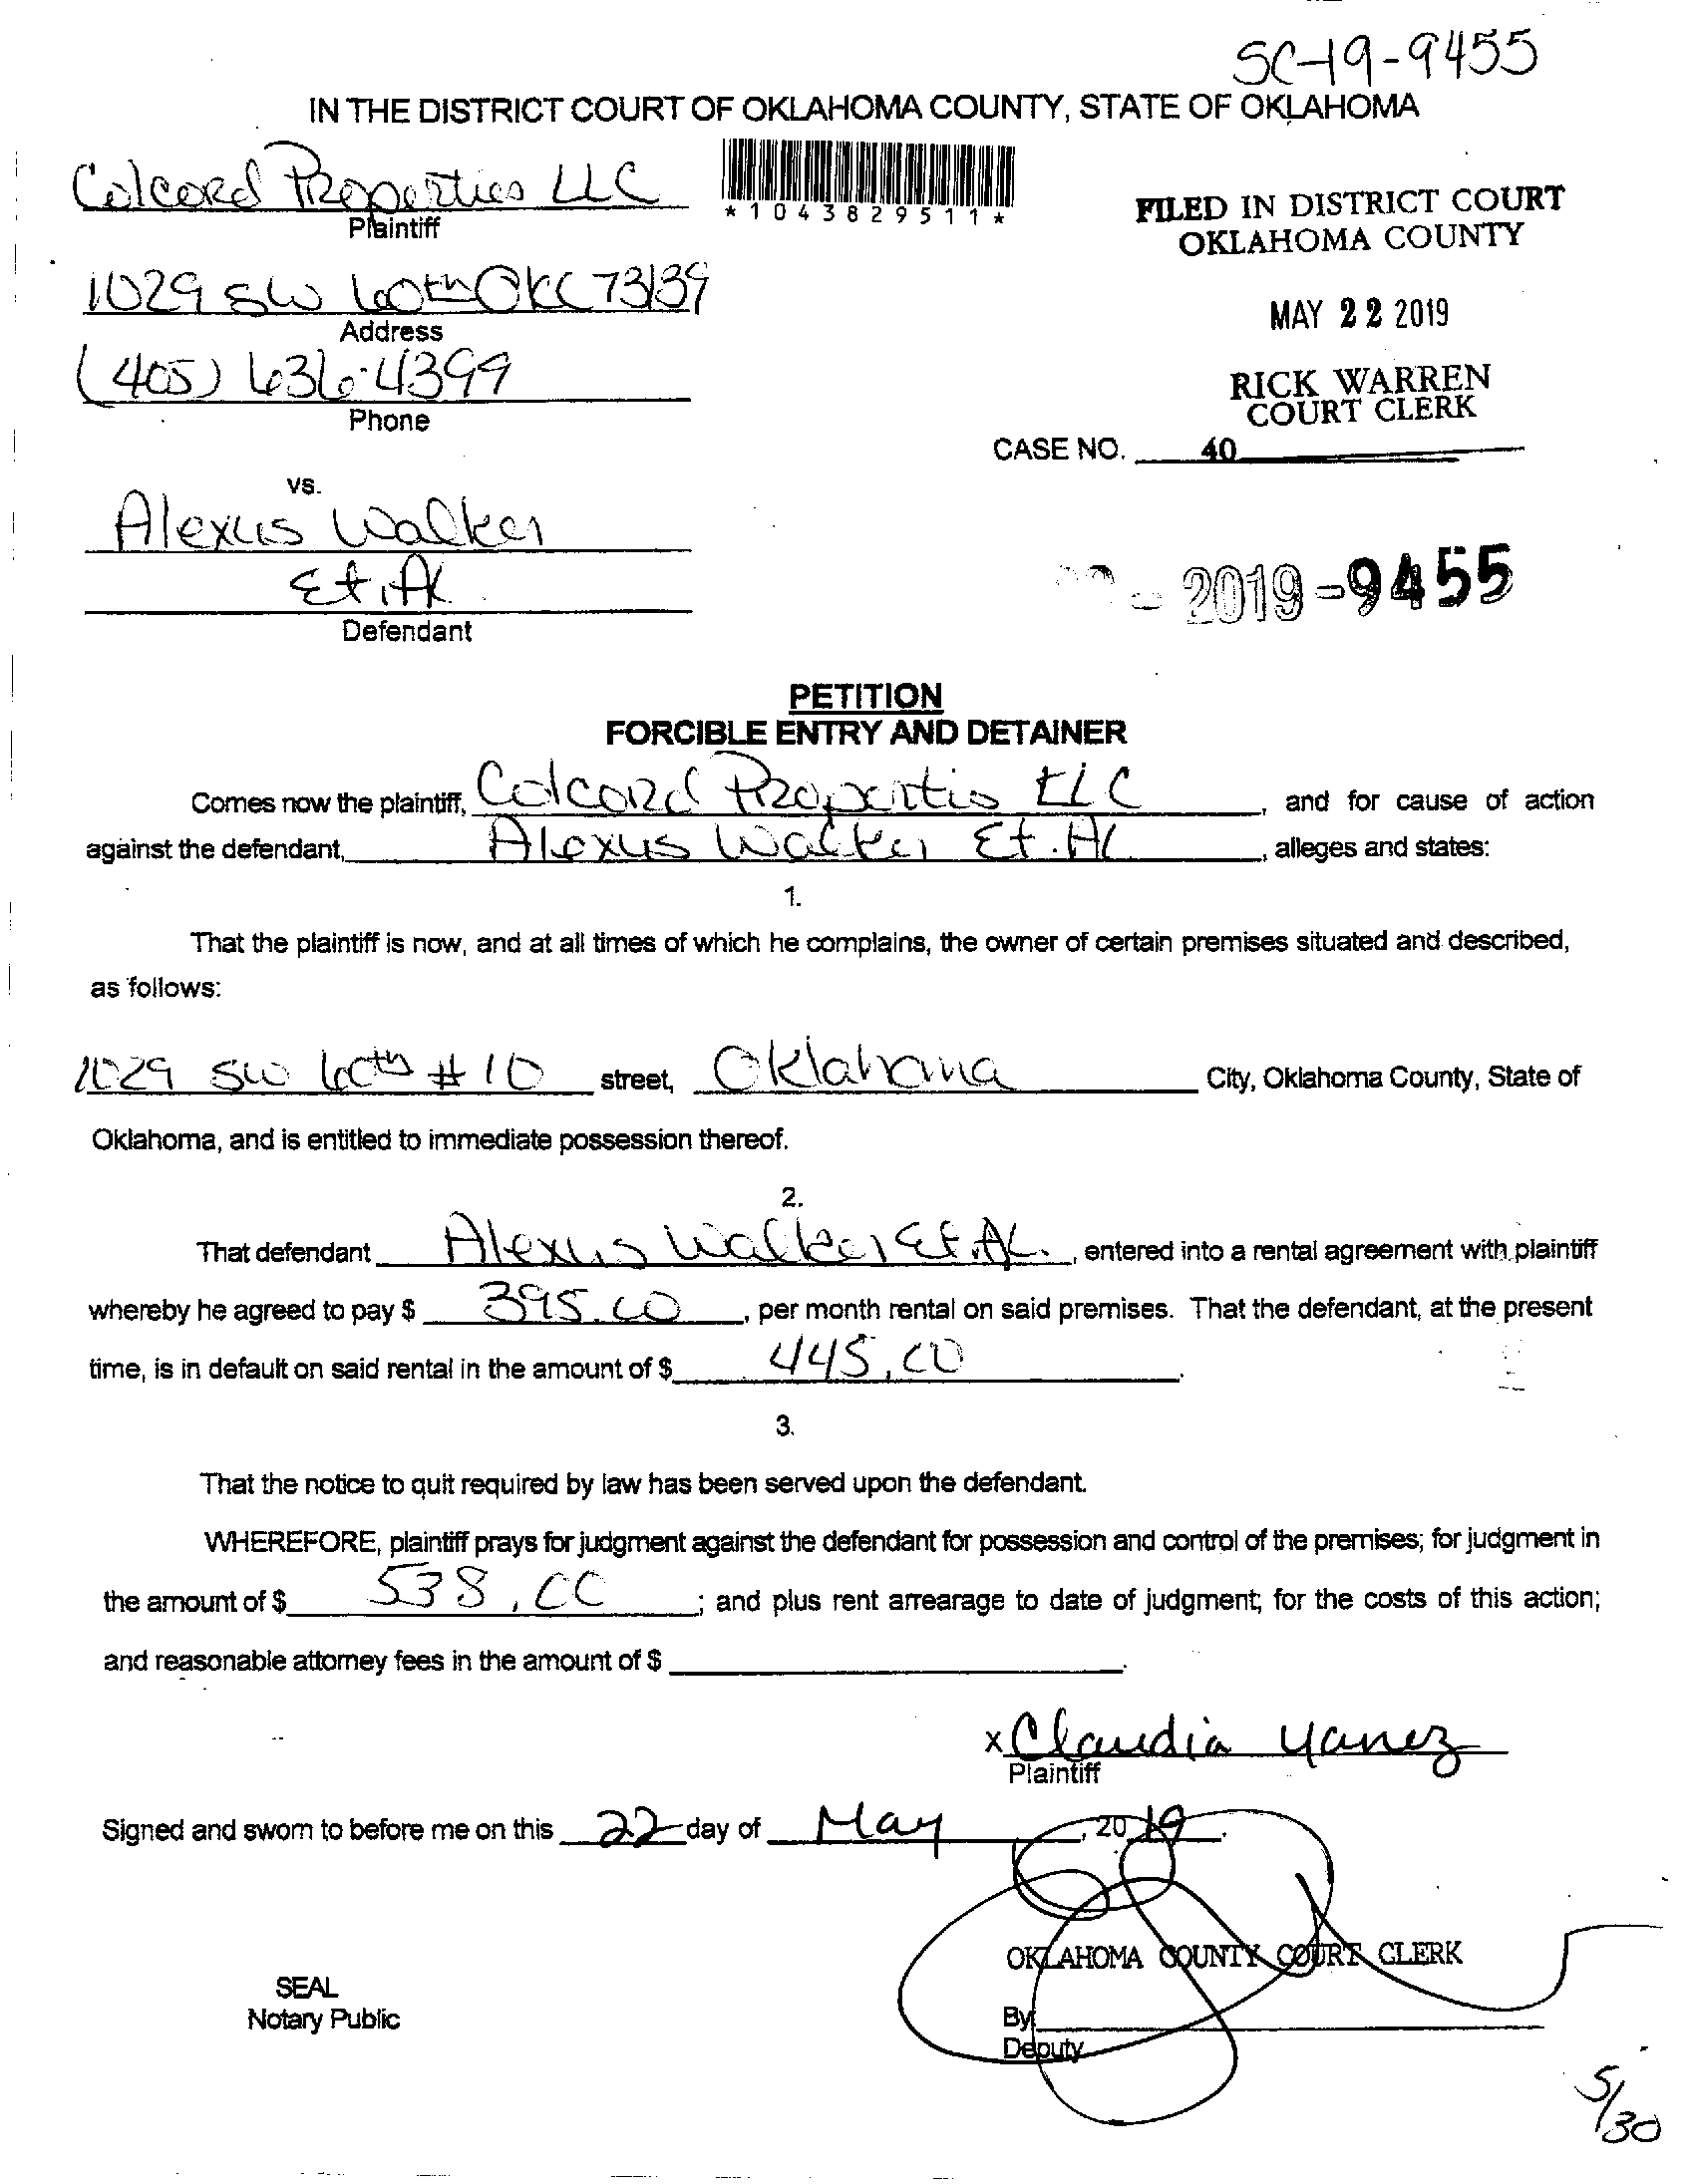 SC-19-9455
IN THE DISTRICT COURT OF OKLAHOMA COUNTY, STATE OF OKLAHOMA
Colcord Properties LLC
Plaintiff
*1043829511*
FILED IN DISTRICT COURT
OKLAHOMA COUNTY
1029 SW 60th OKC 73139
Address
MAY 22 2019
(405) 636-4399
Phone
RICK WARREN
COURT CLERK
CASE NO. 40
vs.
Alexus Walker
Et. Al
Defendant
- 2019-9455
PETITION
FORCIBLE ENTRY AND DETAINER
Comes now the plaintiff, Colcord Propertis LLC, and for cause of action
against the defendant, Alexus Walker Et. Al, alleges and states:
1.
That the plaintiff is now, and at all times of which he complains, the owner of certain premises situated and described,
as follows:
1029 SW 60th #10 street, Oklahoma City, Oklahoma County, State of
Oklahoma, and is entitled to immediate possession thereof.
2.
That defendant Alexus Walker Et. Al., entered into a rental agreement with plaintiff
whereby he agreed to pay $ 395.00, per month rental on said premises. That the defendant, at the present
time, is in default on said rental in the amount of $ 445.00.
3.
That the notice to quit required by law has been served upon the defendant.
WHEREFORE, plaintiff prays for judgment against the defendant for possession and control of the premises; for judgment in
the amount of $ 538.00; and plus rent arrearage to date of judgment; for the costs of this action;
and reasonable attorney fees in the amount of $
x Claudia Yanez
Plaintiff
Signed and sworn to before me on this 22 day of May, 2019.
OKLAHOMA COUNTY COURT CLERK
SEAL
Notary Public
By
Deputy
5/30